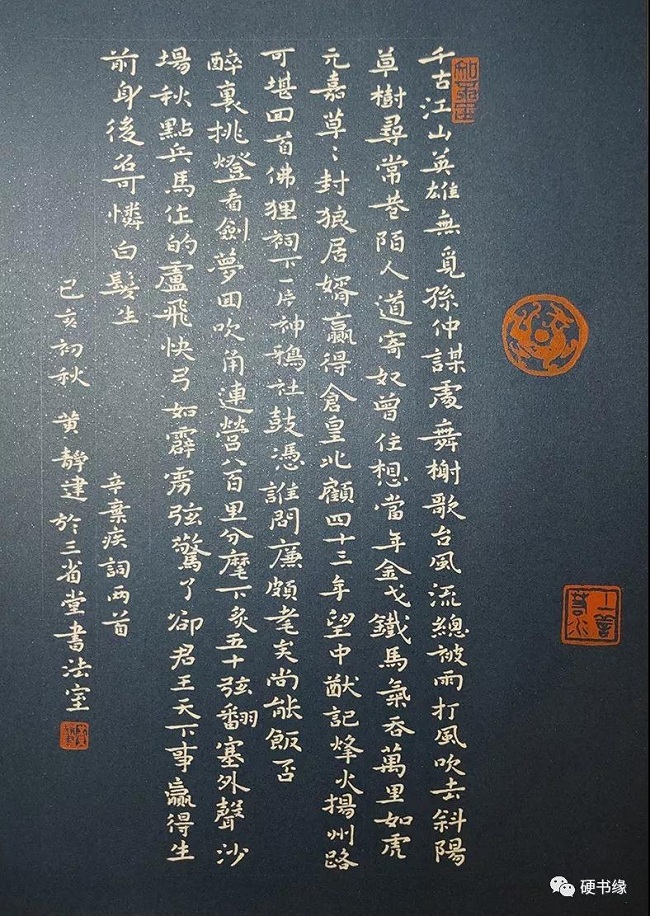 千古江山英雄無覓孫仲謀處舞榭歌台風流總被雨打風吹去斜陽
草樹尋常巷陌人道寄奴曾住想當年金戈鐵馬氣吞萬里如虎
元嘉草〻封狼居婿贏得倉皇北顧四十三年望中猷記烽火揚州路
可堪回首佛狸祠下一片神鴉社鼓憑誰問廉頗耄矣尚能飯否
醉裏挑燈看劍夢回吹角連營八百里分麾下炙五十弦翻塞外聲沙
場秋點兵馬作的盧飛快弓如霹靂弦驚了卻君王天下事贏得生
前身後名可憐白髮生
辛棄疾詞兩首
己亥初秋 黄靜建於三省堂書法室
上善若水
硬书缘